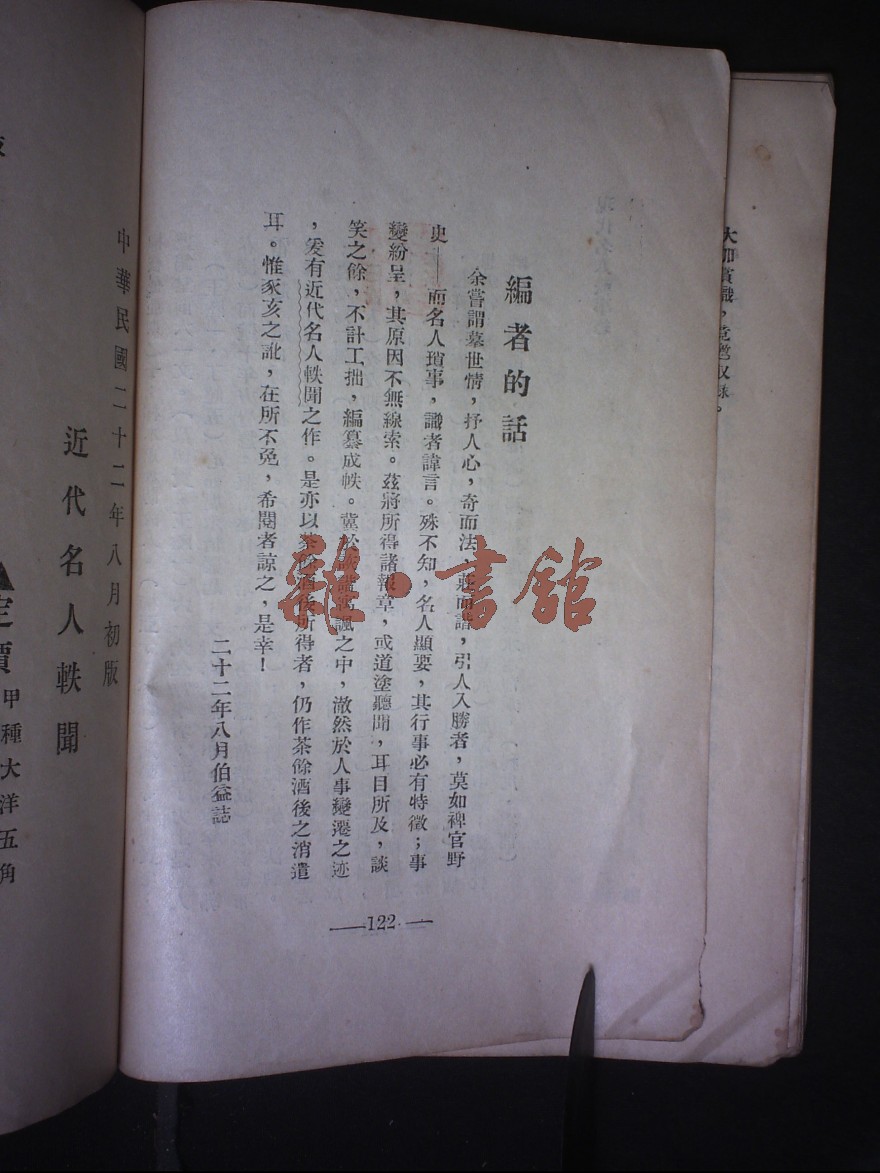 編者的話
余嘗謂摹世情，抒人心，奇而法，莊而諧，引人入勝者，莫如裨官野
史——而名人瑣事，識者諱言。殊不知，名人顯要，其行事必有特徵；事
變紛呈，其原因不無線索。茲將所得諸報章，或道塗聽聞，耳目所及，談
笑之餘，不計工拙，編纂成帙。冀於諷之中，澈然於人事變遷之迹
，爰有近代名人軼聞之作。是亦以茶餘酒後所得者，仍作茶餘酒後之消遣
耳。惟豕亥之訛，在所不免，希閱者諒之，是幸！
二十二年八月伯益誌
—122—
中華民國二十二年八月初版
近代名人軼聞
定價甲種大洋五角
雜·書館